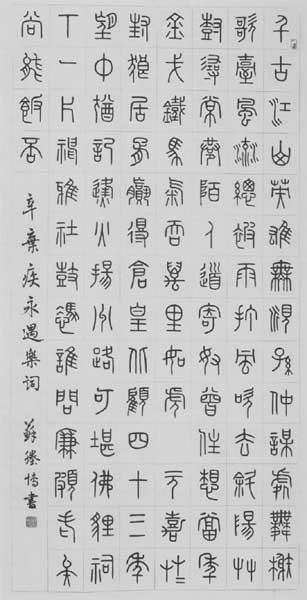 千古江山英雄無覓孫仲謀處舞榭
歌臺風流總被雨打風吹去斜陽艸
樹尋常巷陌人道寄奴曾住想當年
金戈鐵馬氣吞萬里如虎 元嘉艸〻
封狼居胥贏得倉皇北顧四十三年
望中猶記烽火揚州路可堪佛貍祠
丅一片神鴉社鼓憑誰問廉頗老矣
尚能飯否
辛棄疾永遇樂詞 蘇 書